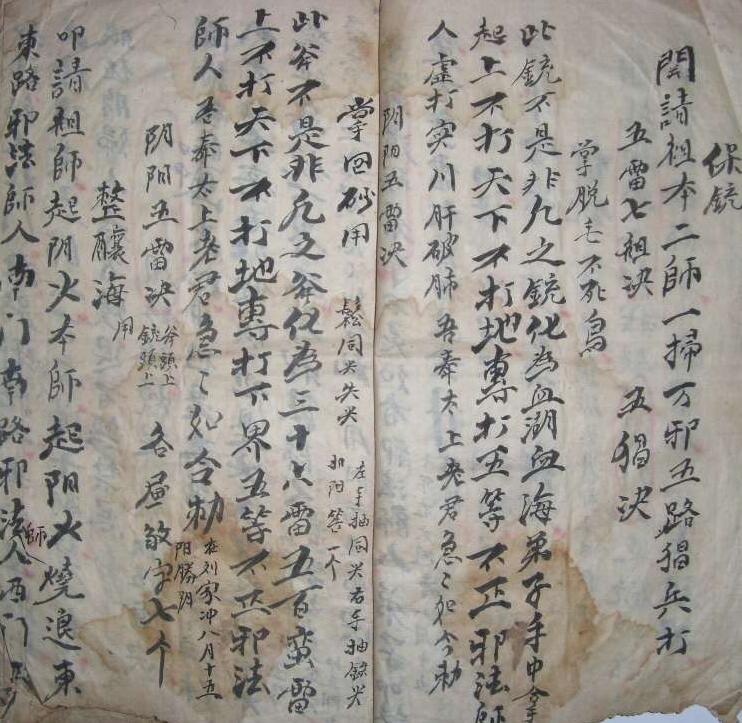 保銃
開請祖本二師一掃万邪五路猖兵打
五雷七祖决 五猖决
掌脱毛不死鳥
此銃不是非凡之銃化為血湖血海弟子手中拿
起上不打天下不打地專打五等不正邪法師
人虛打实川肝破肺吾奉太上老君急〻如令勅
阴阳五雷决
掌回砂用
左手抽同尖右手抽鉄尖
和阳答一个
鬆同尖失尖
此斧不是非凡之斧化為三十六雷五百蛮雷
上不打天下不打地專打下界五等不正邪法
師人吾奉太上老君急〻如令勅
在刘家冲八月十五
阳勝阴
阴阳五雷决 斧頭上 銃頭上 各畫 字七个
整釀海用
叩請祖師起阴火本師起阳火燒退東
東路邪法師人南门南路邪法師人西门